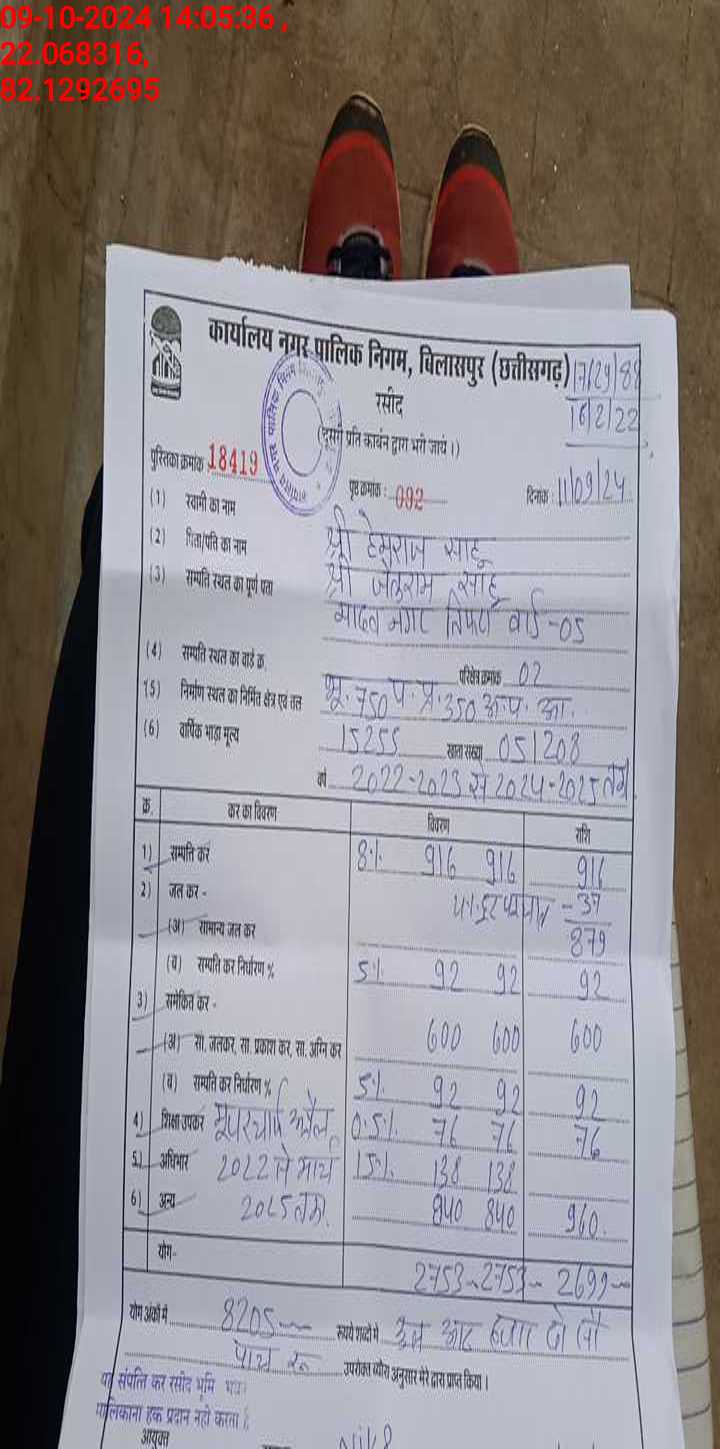 09-10-2024 14:05:36 ,
22.068316,
82.1292695
कार्यालय नगर पालिक निगम, बिलासपुर (छत्तीसगढ़)
17/29/88
16/2/22
रसीद
(दूसरी प्रति कार्बन द्वारा भरी जायं।)
पुस्तिका क्रमांक 18419 पृष्ठ क्रमांक : 092 दिनांक : 11/09/24
(1) स्वामी का नाम श्री हेमुराज साहू
(2) पिता/पति का नाम श्री जेतुराम साहू
(3) सम्पति स्थल का पूर्ण पता यादव नगर तिफरा वार्ड -05
(4) सम्पति स्थल का वार्ड क्र. परिक्षेत्र क्रमांक 02
15) निर्माण स्थल का निर्मित क्षेत्र एवं तल भू. 750 प. प्र. 350 अ. प. आ.
(6) वार्षिक भाड़ा मूल्य 15255 खाता संख्या 051208
वर्ष 2022-2023 से 2024-2025 तक
क्र. कर का विवरण विवरण राशि
1) सम्पति कर 8% 916 916 916
2) जल कर - पश्चात - 37
(अ) सामान्य जल कर 879
(ब) सम्पति कर निर्धारण % 5% 92 92 92
3) समेकित कर -
(अ) सा. जलकर, सा. प्रकाश कर, सा. अग्नि कर 600 600 600
(ब) सम्पति कर निर्धारण % 5% 92 92 92
4) शिक्षा उपकर यूजरचार्ज अप्रैल 0.5% 76 76 76
5) अधिभार 2022 से मार्च 15% 138 138
6) अन्य 2025 तक. 840 840 960.
योग- 2753 2753 2699
योग अंकों में 8205 रूपये शब्दों में आठ हजार दो सौ
पांच रू उपरोक्त ब्यौरा अनुसार मेरे द्वारा प्राप्त किया।
यह संपत्ति कर रसीद भूमि
मालिकाना हक प्रदान नहीं करता है
आयुक्त